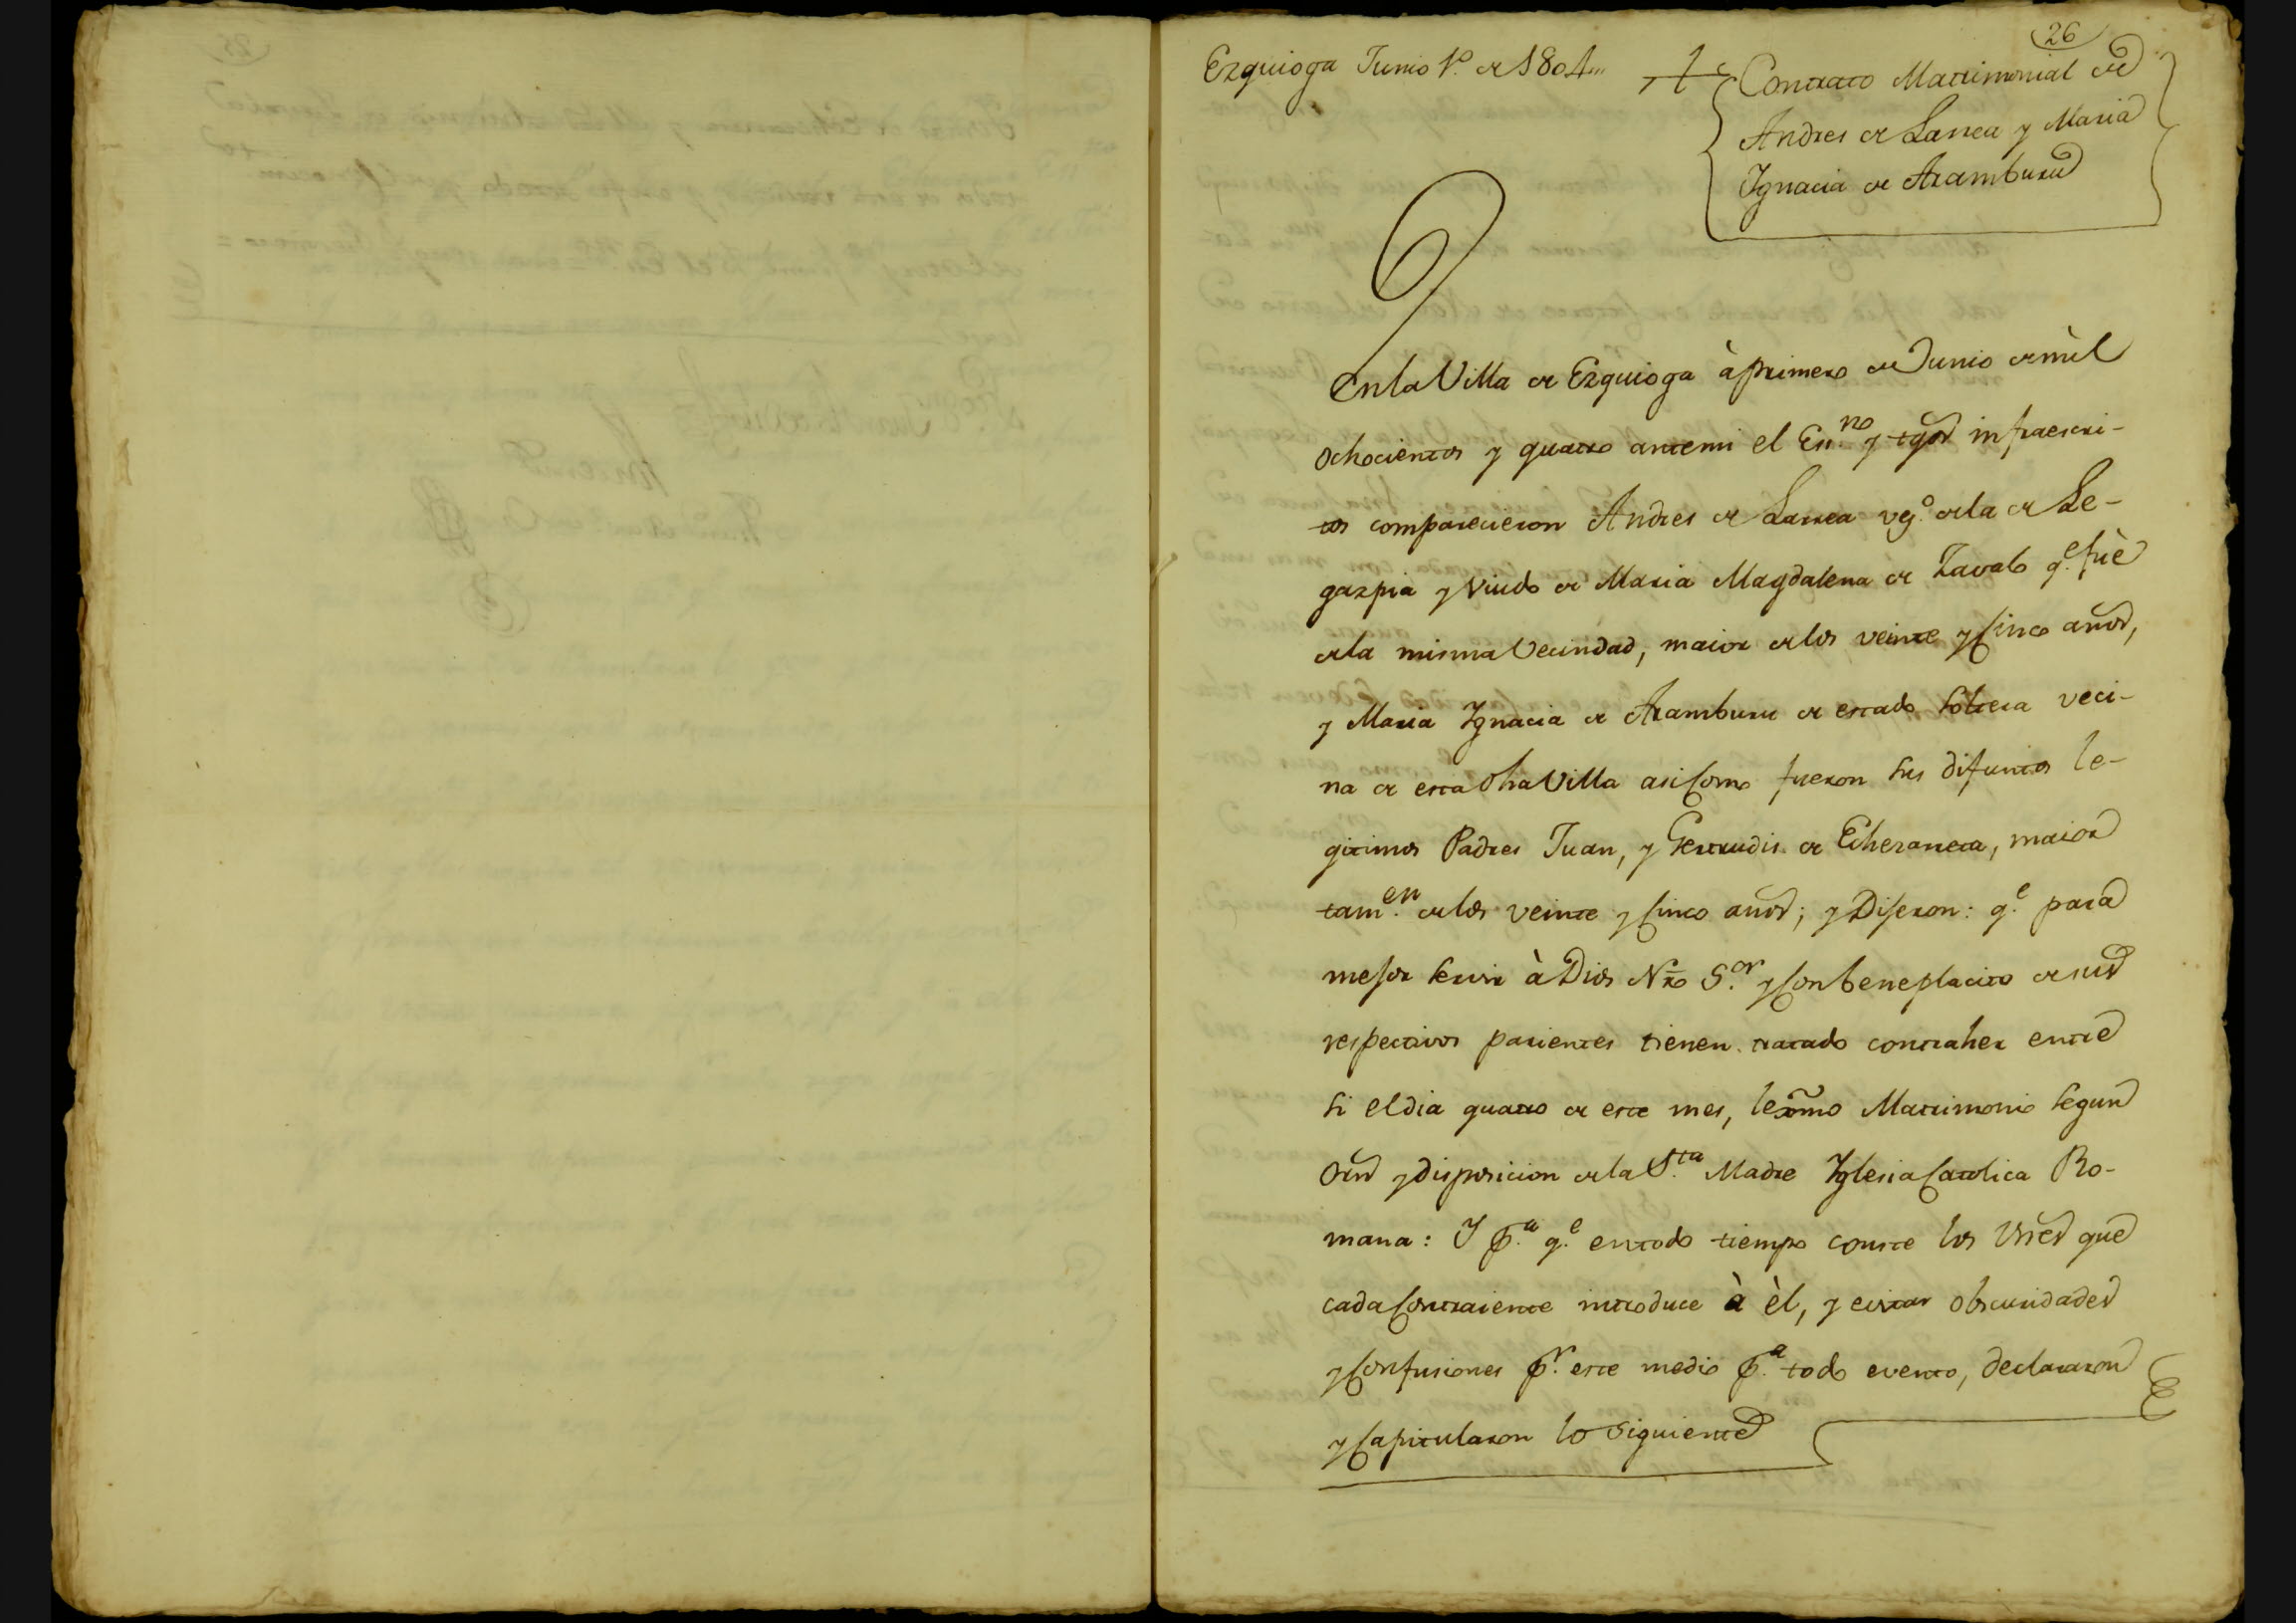 26
Ezquioga Junio 1º. de 1804
Contrato Matrimonial de
Andres de Larrea y Maria
Ignacia de Aramburu
En la Villa de Ezquioga à primero de Junio de mil
ochocientos y quatro ante mi el Essno. y tgos infraescri-
tos comparecieron Andres de Larrea vezº. de la de Le-
gazpia y Viudo de Maria Magdalena de Zavalo q.e fuè
de la misma Vecindad, maior de los veinte y Cinco años,
y Maria Ignacia de Aramburu de estado Soltera veci-
na de esta dha Villa asi Como fueron sus difuntos le-
gitimos Padres Juan, y Gertrudis de Echezarreta, maior
tam.en de los veinte y Cinco años; y Dijeron: q.e para
mejor Servir à Dios Nro S.or y Con beneplacito de sus
respectivos parientes tienen tratado contraher entre
Si el dia quatro de este mes, lexmo Matrimonio Segun
Orn y disposicion de la S.ta Madre Yglesia Catolica Ro-
mana: Y p.a q.e en todo tiempo conste los Vnes que
cada Contraiente introduce à èl, y evitar obscuridades
y Confusiones p.r este medio p.a todo evento, declararon
y Capitularon lo Siguiente